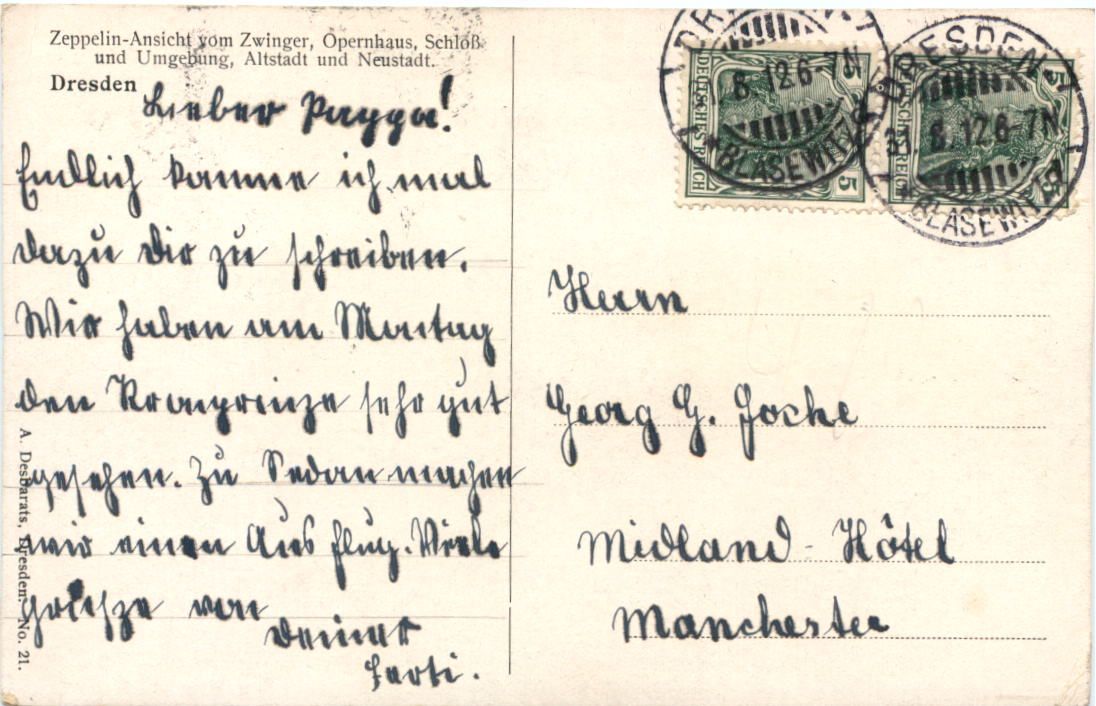 Zeppelin-Ansicht vom Zwinger, Opernhaus, Schloß
und Umgebung, Altstadt und Neustadt.
Dresden
Lieber Pappa!
Endlich komme ich mal
dazu Dir zu schreiben.
Wir haben am Montag
den Kronprinze sehr gut
gesehen. Zu Sedan machen
wir einen Ausflug. Viele
von
Deiner
A. Desbarats, Dresden. No. 21.
DEUTSCHES REICH
5
5
DEUTSCHES REICH
5
5
8.12.6-7N
BLASEWITZ
DRESDEN
31.8.12.6-7N
BLASEWITZ
Herrn
Georg G.
Midland-Hôtel
Manchester